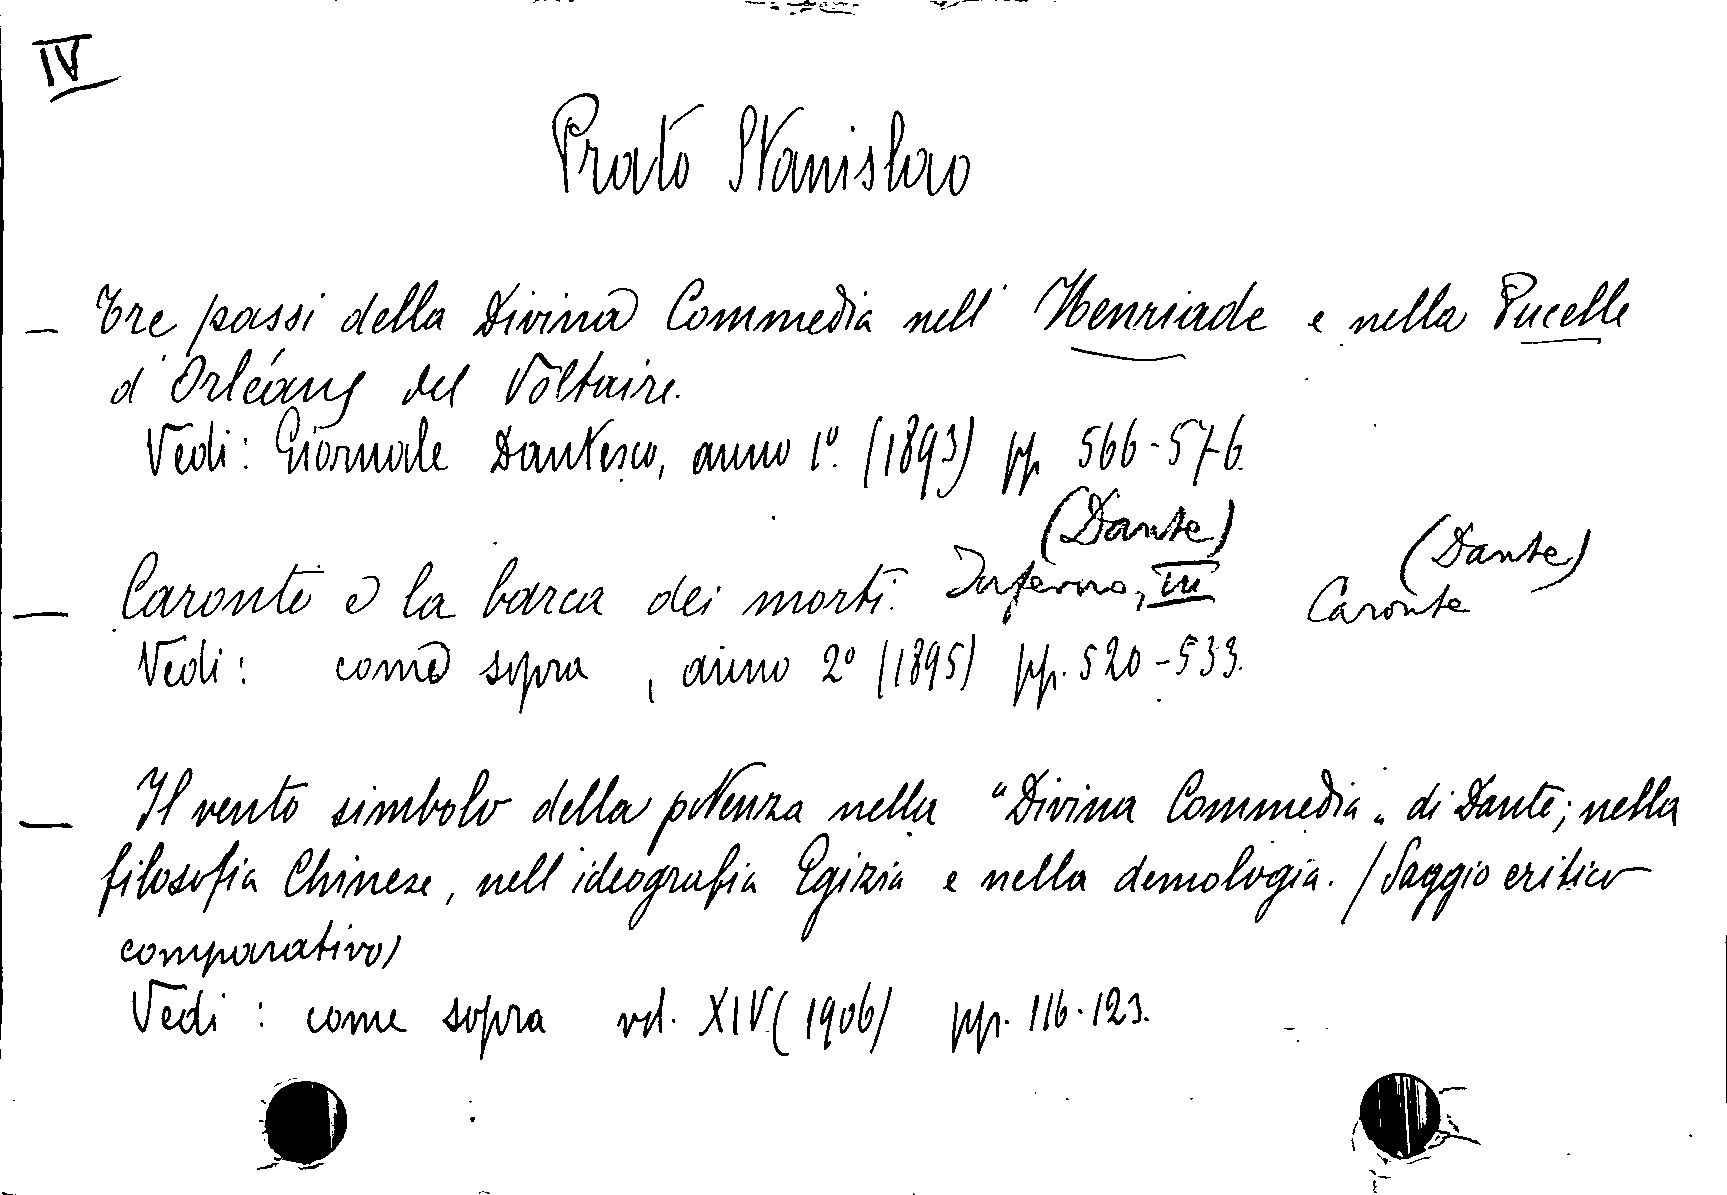 IV
Prato Stanislao
— Tre passi della Divina Commedia nell' Henriade e nella Pucelle
d'Orléans del Voltaire.
Vedi: Giornale Dantesco, anno 1º. (1893) pp. 566-576.
(Dante) (Dante)
— Caronte e la barca dei morti. Inferno, III Caronte
Vedi: come sopra, anno 2º (1895) pp. 520-533.
— Il vento simbolo della potenza nella "Divina Commedia" di Dante; nella
filosofia Chinese, nell'ideografia Egizia e nella demologia. (Saggio critico
comparativo)
Vedi: come sopra vol. XIV (1906) pp. 116-123.